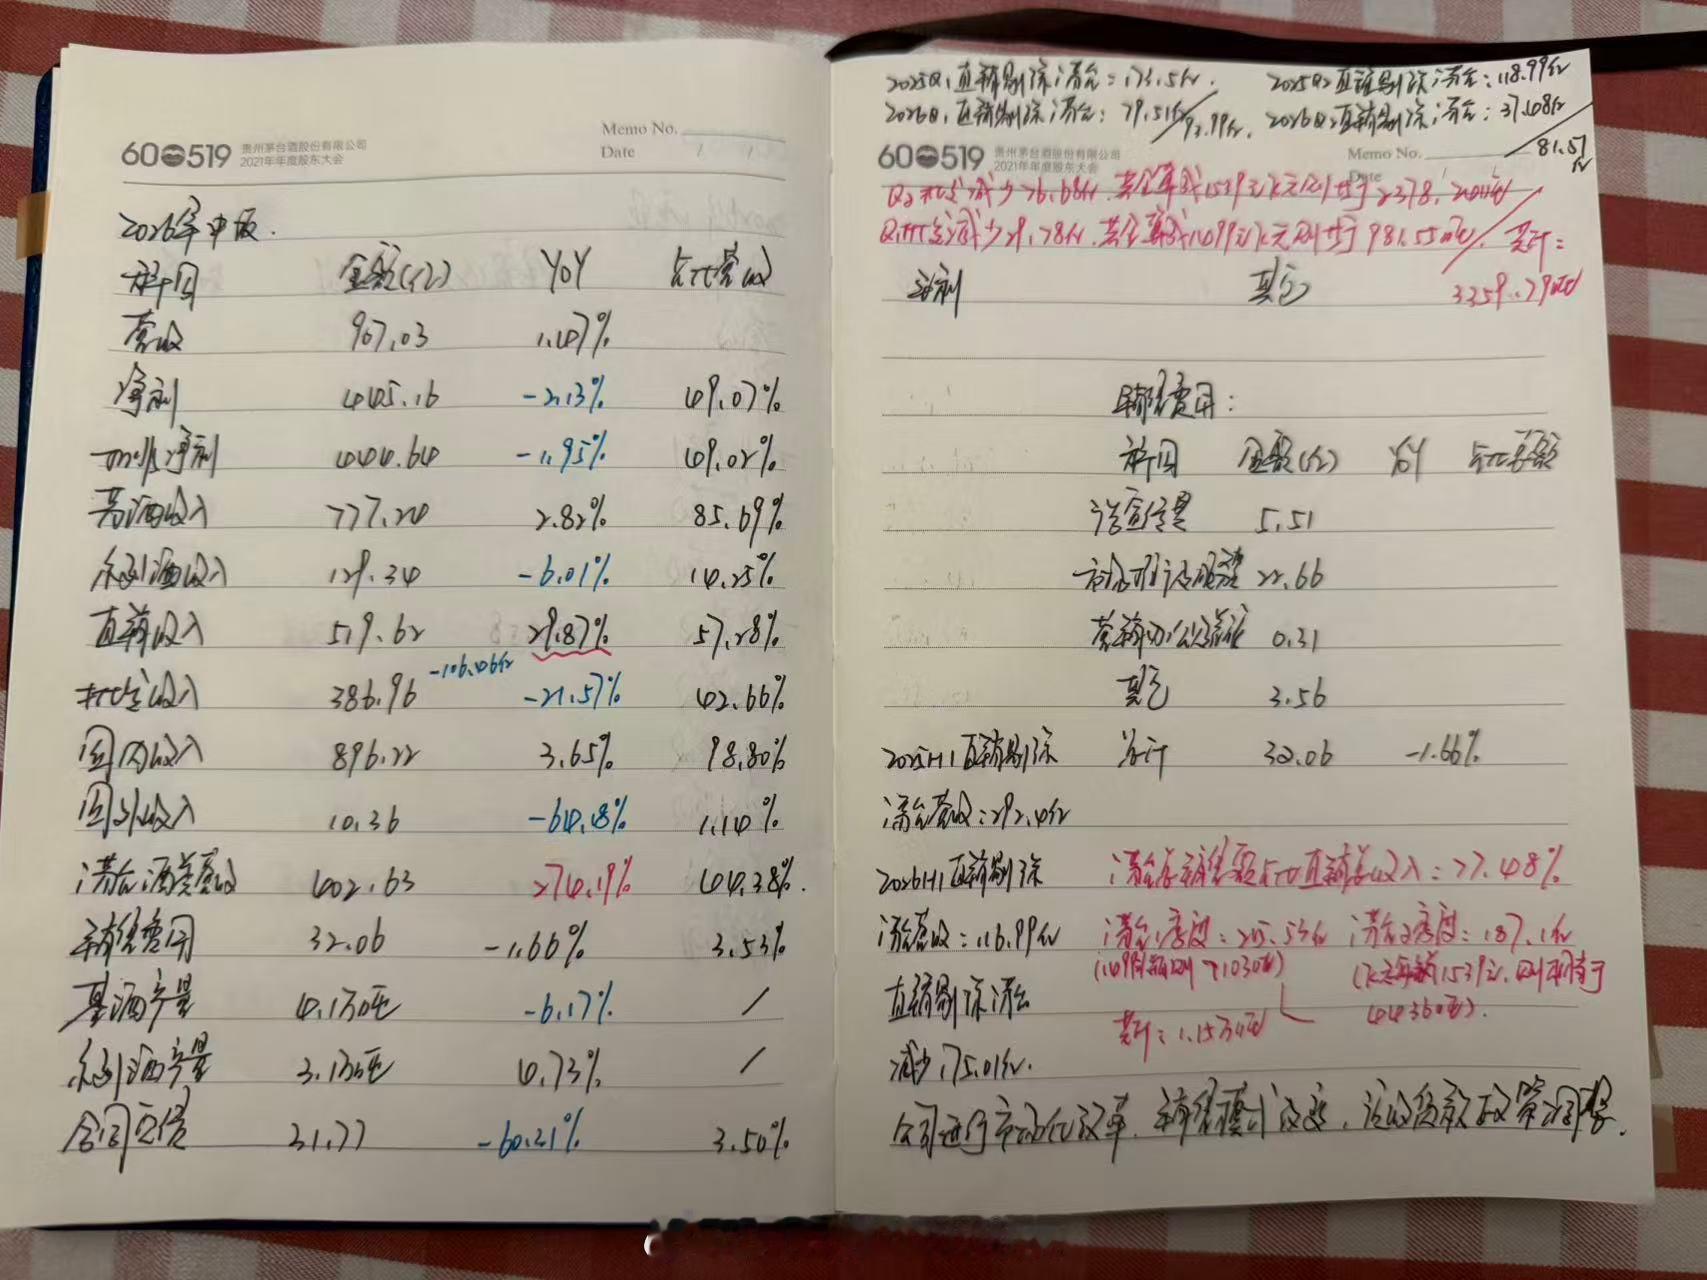 60 519 贵州茅台酒股份有限公司
2021年年度股东大会
Memo No.
Date
2026年中报.
科目 金额(亿) YoY 占比营收
营收 907.03 1.47%
净利 445.16 -2.13% 49.07%
扣非净利 444.64 -1.95% 49.02%
茅酒收入 777.24 2.82% 85.69%
系列酒收入 129.34 -6.01% 14.25%
直销收入 519.62 29.87% 57.28%
批发收入 386.96 -106.406亿 -21.57% 42.66%
国内收入 896.22 3.65% 98.80%
国外收入 10.36 -64.18% 1.14%
i茅台酒类营收 402.63 274.19% 44.38%.
销售费用 32.06 -1.66% 3.53%
基酒产量 4.1万吨 -6.17% /
系列酒产量 3.1万吨 4.73% /
合同负债 31.77 -60.21% 3.50%
2025Q1直销剔除i茅台:173.5亿. 2025Q2直销剔除i茅台:118.99亿
2026Q1直销剔除i茅台:79.51亿/93.99亿. 2026Q2直销剔除i茅台:37.48亿/
81.51亿
60 519 贵州茅台酒股份有限公司
2021年年度股东大会
Memo No.
Date
Q2批发减少76.68亿.
Q1批发减少29.78亿. 共计:
净利 其它 3359.79吨
销售费用:
科目 金额(亿) YoY 占比总额
广告宣传费 5.51
市场推广及服务费 22.66
营销办公差旅 0.31
其它 3.56
2025H1直销剔除 总计 32.06 -1.66%
i茅台营收:292.4亿
2026H1直销剔除 i茅台占销售额占比直销总收入:77.48%
i茅台营收:116.99亿 i茅台1季度:215.53亿 i茅台2季度:187.1亿
直销剔除i茅台
共计:1.15万吨
减少175.01亿.
公司进行市场化改革.销售模式改变,